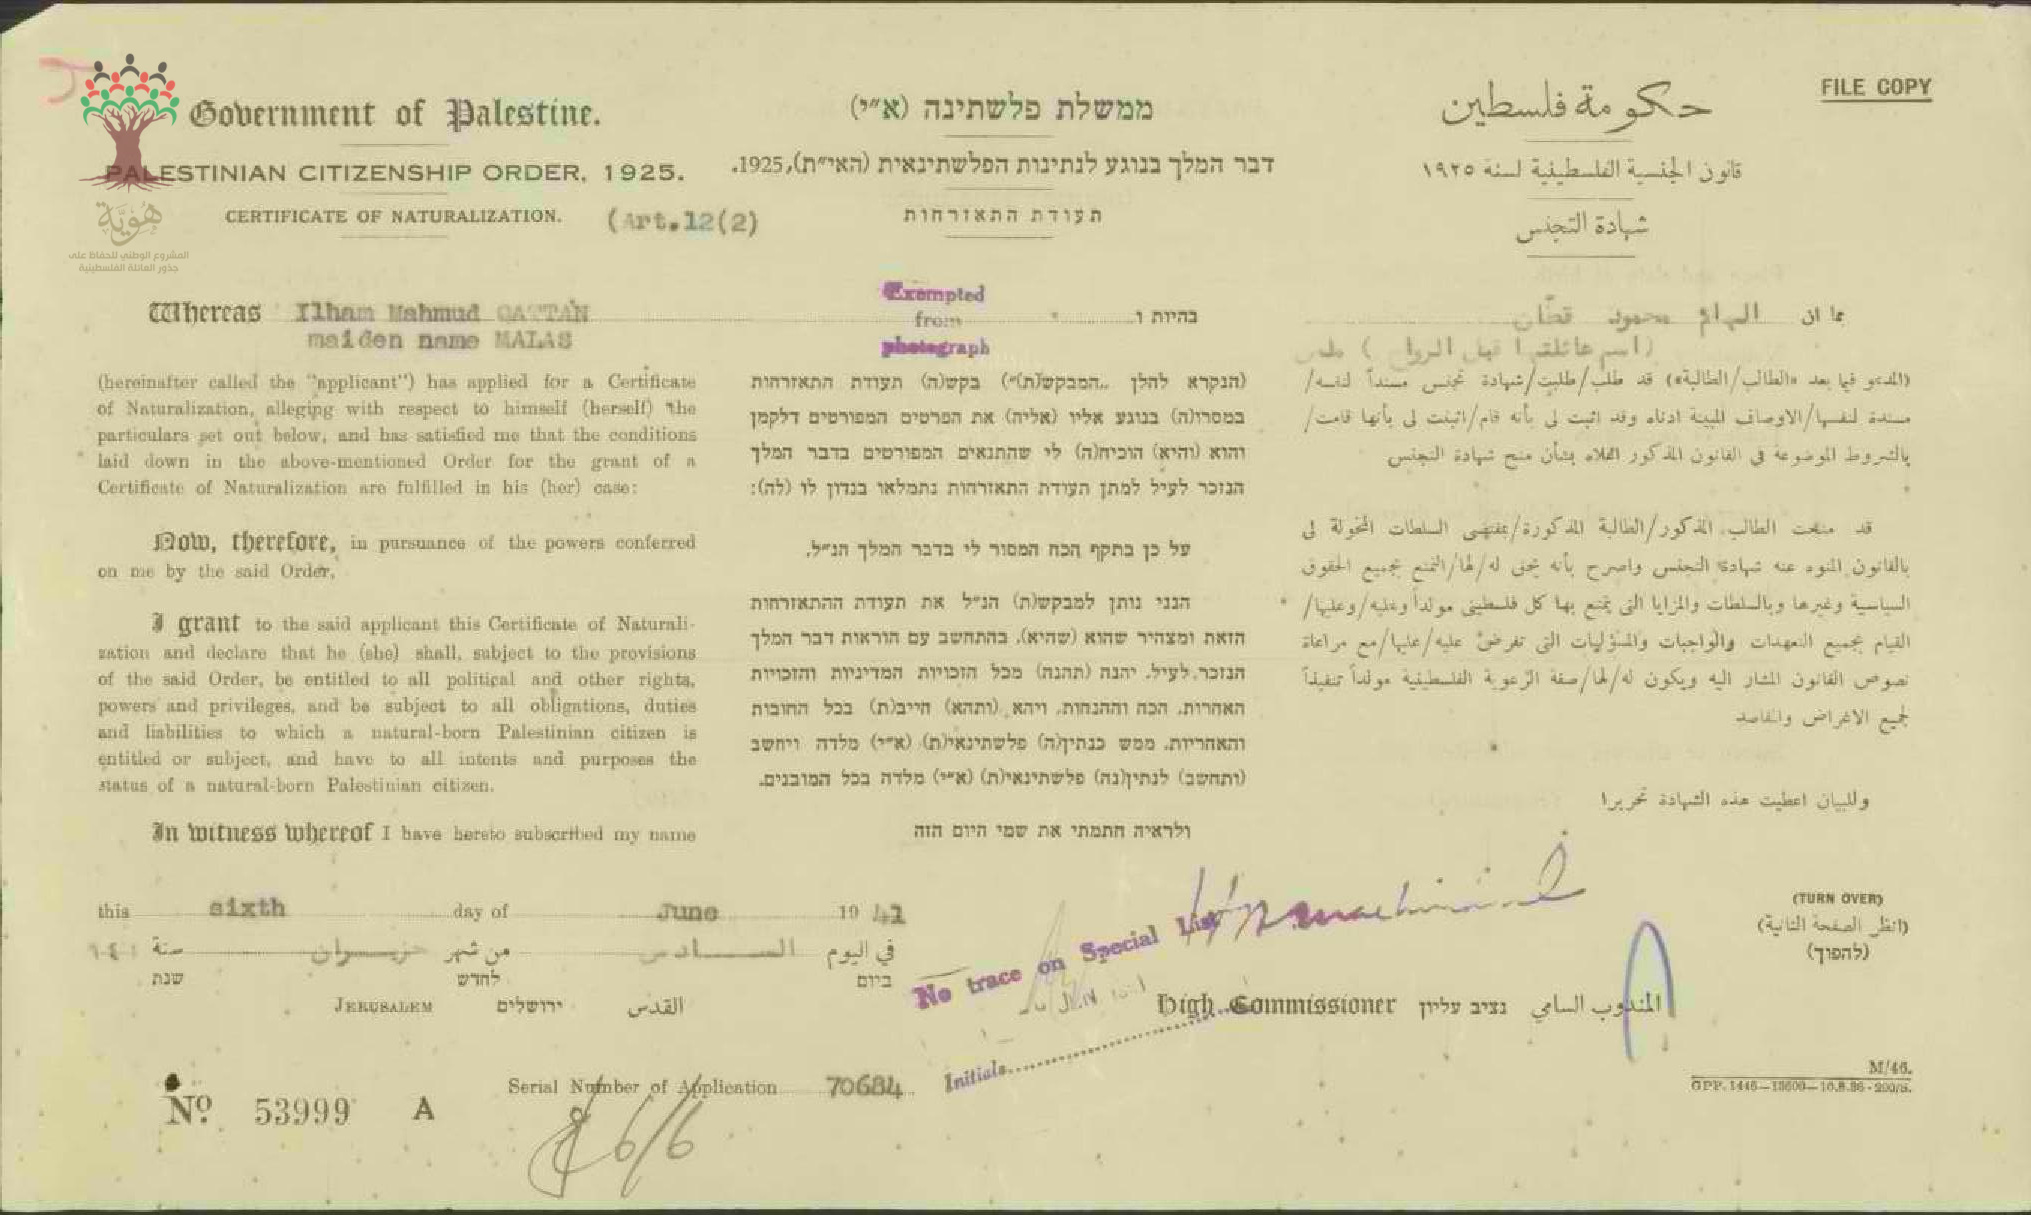 FILE COPY
Government of Palestine.
PALESTINIAN CITIZENSHIP ORDER, 1925.
CERTIFICATE OF NATURALIZATION. (Art.12(2)
هُوِيَّة
المشروع الوطني للحفاظ على
جذور العائلة الفلسطينية
Whereas Ilham Mahmud QATTAN
maiden name MALAS
(hereinafter called the "applicant") has applied for a Certificate
of Naturalization, alleging with respect to himself (herself) the
particulars set out below, and has satisfied me that the conditions
laid down in the above-mentioned Order for the grant of a
Certificate of Naturalization are fulfilled in his (her) case:
Now, therefore, in pursuance of the powers conferred
on me by the said Order,
I grant to the said applicant this Certificate of Naturali-
zation and declare that he (she) shall, subject to the provisions
of the said Order, be entitled to all political and other rights,
powers and privileges, and be subject to all obligations, duties
and liabilities to which a natural-born Palestinian citizen is
entitled or subject, and have to all intents and purposes the
status of a natural-born Palestinian citizen.
In witness whereof I have hereto subscribed my name
ממשלת פלשתינה (א״י)
דבר המלך בנוגע לנתינות הפלשתינאית (האי״ת), 1925.
תעודת התאזרחות
Exempted
from
photograph
בהיות ו
(הנקרא להלן „המבקש(ת)") בקש(ה) תעודת התאזרחות
במסרו(ה) בנוגע אליו (אליה) את הפרטים המפורטים דלקמן
והוא (והיא) הוכיח(ה) לי שהתנאים המפורטים בדבר המלך
הנזכר לעיל למתן תעודת התאזרחות נתמלאו בנדון לו (לה):
על כן בתקף הכח המסור לי בדבר המלך הנ״ל,
הנני נותן למבקש(ת) הנ״ל את תעודת ההתאזרחות
הזאת ומצהיר שהוא (שהיא), בהתחשב עם הוראות דבר המלך
הנזכר לעיל, יהנה (תהנה) מכל הזכויות המדיניות והזכויות
האחרות, הכח וההנחות, ויהא (ותהא) חייב(ת) בכל החובות
והאחריות, ממש כנתין(ה) פלשתינאי(ת) (א״י) מלדה ויחשב
(ותחשב) לנתין(נה) פלשתינאי(ת) (א״י) מלדה בכל המובנים.
ולראיה חתמתי את שמי היום הזה
حكومة فلسطين
قانون الجنسية الفلسطينية لسنة ١٩٢٥
شهادة التجنس
بما ان الهام محمود قطّان
(اسم عائلتها قبل الزواج) ملص
(المدعو فيما بعد «الطالب/الطالبة») قد طلب/طلبت/شهادة تجنس مسنداً لنفسه/
مسندة لنفسها/الاوصاف المبينة ادناه وقد اثبت لي بأنه قام/اثبتت لي بأنها قامت/
بالشروط الموضوعة في القانون المذكور اعلاه بشأن منح شهادة التجنس
قد منحت الطالب المذكور/الطالبة المذكورة/بمقتضى السلطات المخولة لي
بالقانون المنوه عنه شهادة التجنس واصرح بأنه يحق له/لها/التمتع بجميع الحقوق
السياسية وغيرها وبالسلطات والمزايا التي يتمتع بها كل فلسطيني مولداً وعليه/وعليها/
القيام بجميع التعهدات والواجبات والمسؤليات التي تفرض عليه/عليها/مع مراعاة
نصوص القانون المشار اليه ويكون له/لها/صفة الرعوية الفلسطينية مولداً تنفيذاً
لجميع الاغراض والمقاصد
وللبيان اعطيت هذه الشهادة تحريرا
this sixth day of June 1941
في اليوم السادس من شهر حزيران سنة
ביום לחדש שנת
JERUSALEM ירושלים القدس
No trace on Special List
Initials
High Commissioner נציב עליון المندوب السامي
(TURN OVER)
(انظر الصفحة الثانية)
(להפוך)
M/46.
GPP. 1446—13600—10.8.36-200/S.
Serial Number of Application 70684
Nº 53999 A
6/6